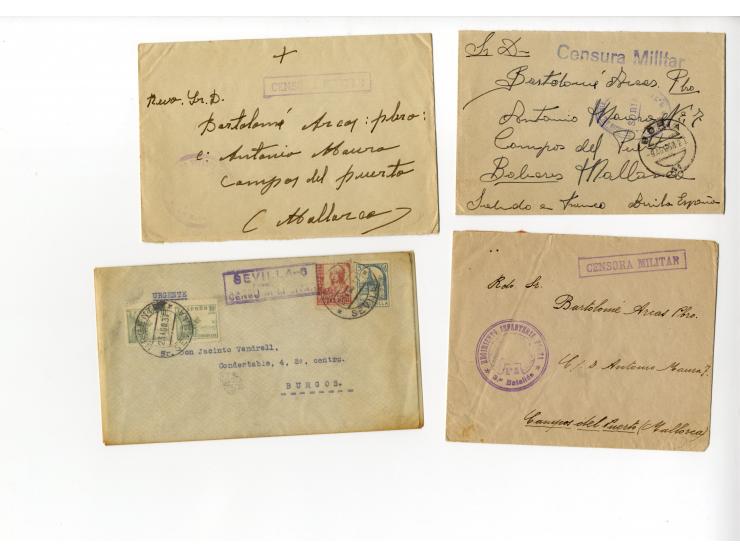 +
CENSURA MILITAR
Revo. Sr. D.
Bartolomé Arcas: pbro:
c: Antonio Maura
Campos del puerto
(Mallorca)
Sr D=
Censura Militar
Bartolomé Arcas. Pbro
Antonio Maura Nº 7
SORIA
SORIA
Campos del
Baleares Mallorca
Saludo a Franco Arriba España
SEVILLA-6
URGENTE
SEVILLA
Sr. Don Jacinto Vendrell.
Condertable, 4, 2º. centro.
BURGOS.
CENSURA MILITAR
Rdo Sr.
Bartolomé Arcas Pbro.
REGIMIENTO INFANTERIA
3.er Batallón
C/ D. Antonio Maura 7.
Campos del Puerto (Mallorca)